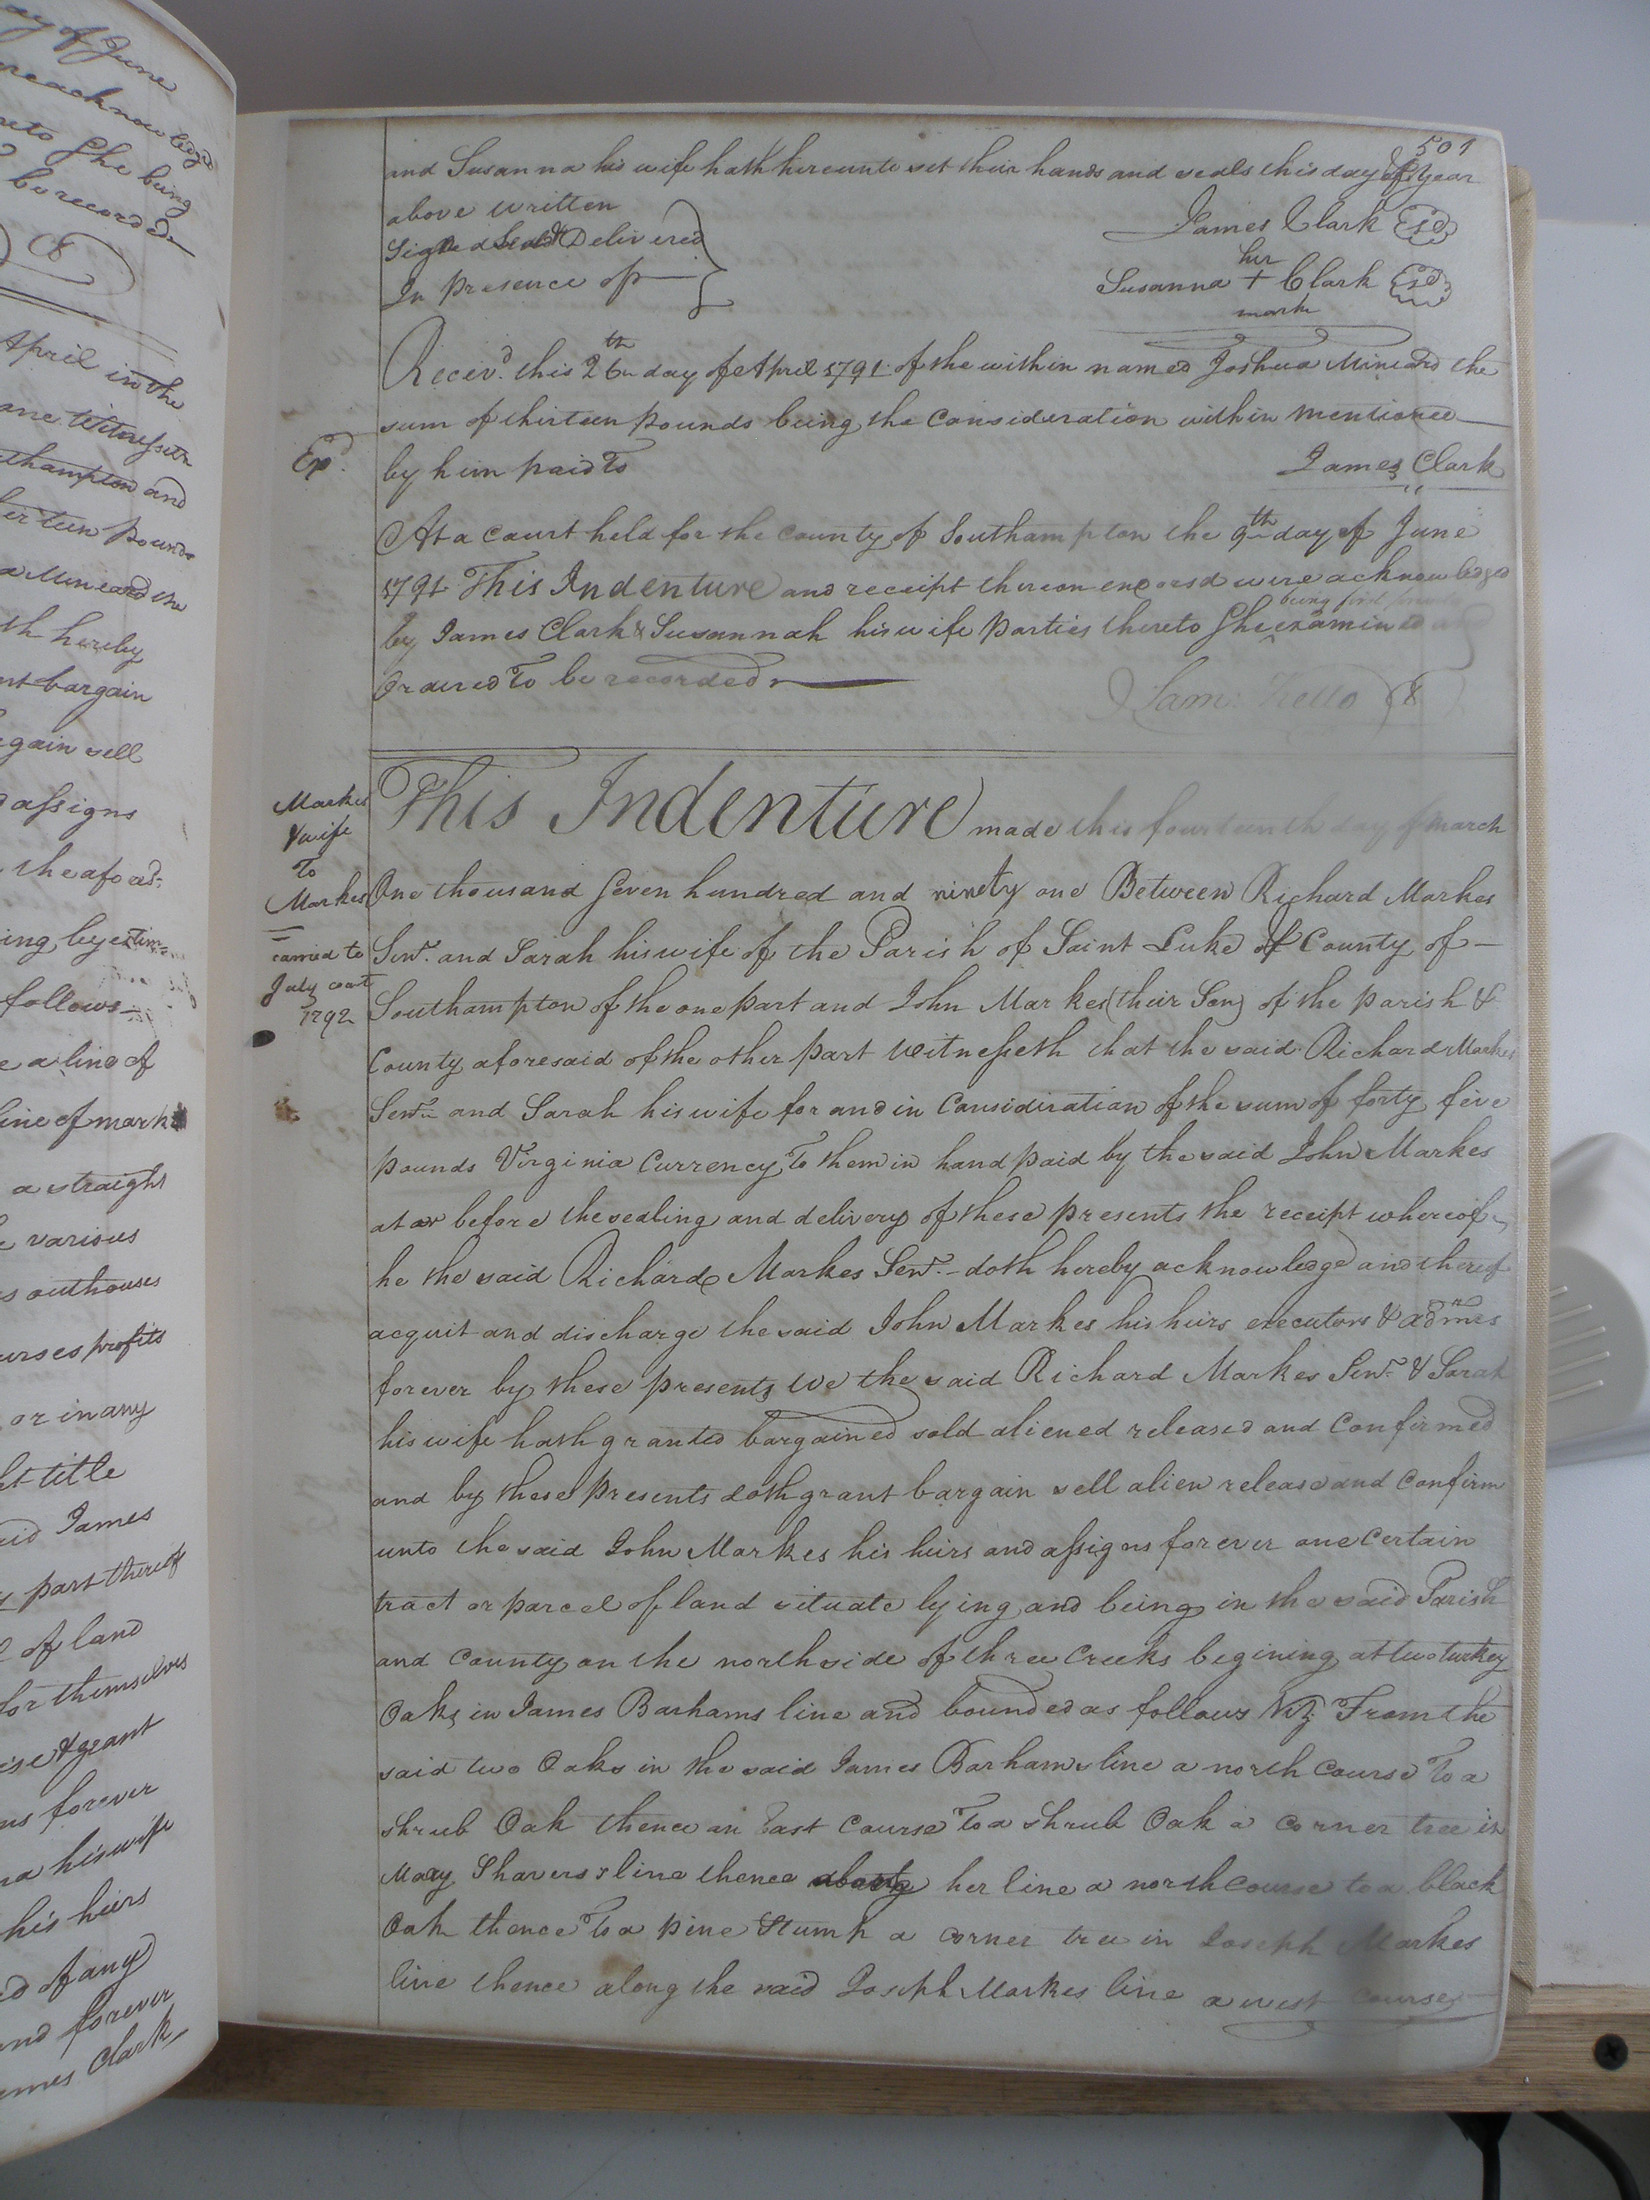 ay of June
reacknowledgd
reto She being
be recorded
April in the
ane Witnesseth
uthampton and
hirteen pounds
a Mineard the
th hereby
nt bargain
gain sell
d assigns
the afores:
ing by estim=
follows
e a line of
line of mark
a straight
e various
s outhouses
urses profits
or in any
et title
aid James
s part thereof
l of land
for themselves
ise & grant
ns forever
na his wife
his heirs
ed of any
nd forever
ames Clark
501
and Susanna his wife hath hereunto set their hands and seals this day & year
above written
Signed Seald & Delivered
In presence of
James Clark
her
Susanna + Clark
mark
Receivd. this 26th day of April 1791 of the within named Joshua Mineard the
sum of thirteen pounds being the Consideration within mentioned
by him paid To James Clark
Exd.
At a Court held for the County of Southampton the 9th day of June
1791 This Indenture and receipt thereon endorsd were acknowledged
being first
by James Clark & Susannah his wife parties thereto She examined
Ordered To be recorded
Sam: Kello
Markes
& wife
To
Markes
carried to
July court
1792
This Indenture made this fourteenth day of March
One thousand Seven hundred and ninety one Between Richard Markes
Senr. and Sarah his wife of the Parish of Saint Luke & County of
Southampton of the one part and John Markes (their Son) of the parish &
County aforesaid of the other part Witnesseth that the said Richard Markes
Senr. and Sarah his wife for and in Consideration of the sum of forty five
pounds Virginia Currency To them in hand paid by the said John Markes
at or before the sealing and delivery of these presents the receipt whereof
he the said Richard Markes Senr. doth hereby acknowledge and thereof
acquit and discharge the said John Markes his heirs executors & admrs
forever by these presents We the said Richard Markes Senr. & Sarah
his wife hath granted bargained sold aliened released and Confirmed
and by these presents doth grant bargain sell alien release and Confirm
unto the said John Markes his heirs and assigns forever one Certain
tract or parcel of land situate lying and being in the said Parish
and County on the north side of three Creeks begining at two turkey
Oaks in James Barhams line and bounded as follows Viz From the
said two Oaks in the said James Barhams line a north Course To a
shrub Oak thence an East Course To a shrub Oak a corner tree in
Mary Shavers's line thence her line a north Course to a black
Oak thence To a pine Stump a corner tree in Joseph Markes
line thence along the said Joseph Markes line a west Course